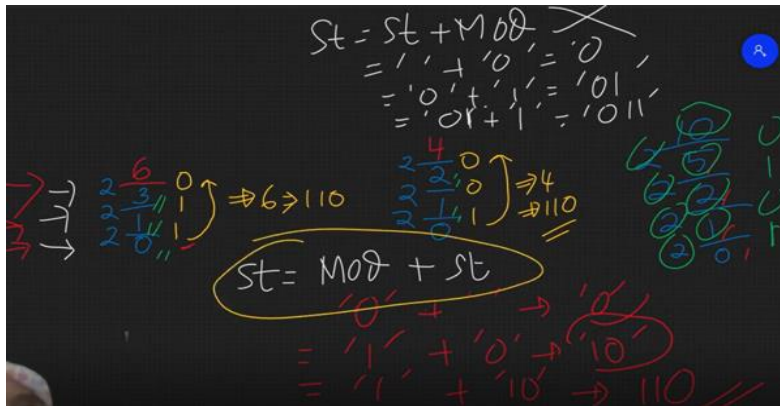 St = St + Mod
= ' ' + '0' = '0
= '0' + '1' = '01
= '01 + '1' = '011'
2 6 0
2 3 1
2 1 1
0
⇒ 6 → 110
2 4 0
2 2 0
2 1 1
0
⇒ 4
⇒ 110
2 10 0
2 5 1
2 2
2 1
0
St = Mod + St
'0' + ' → '0'
= '1' + '0' → '10'
= '1' + '10' → 110